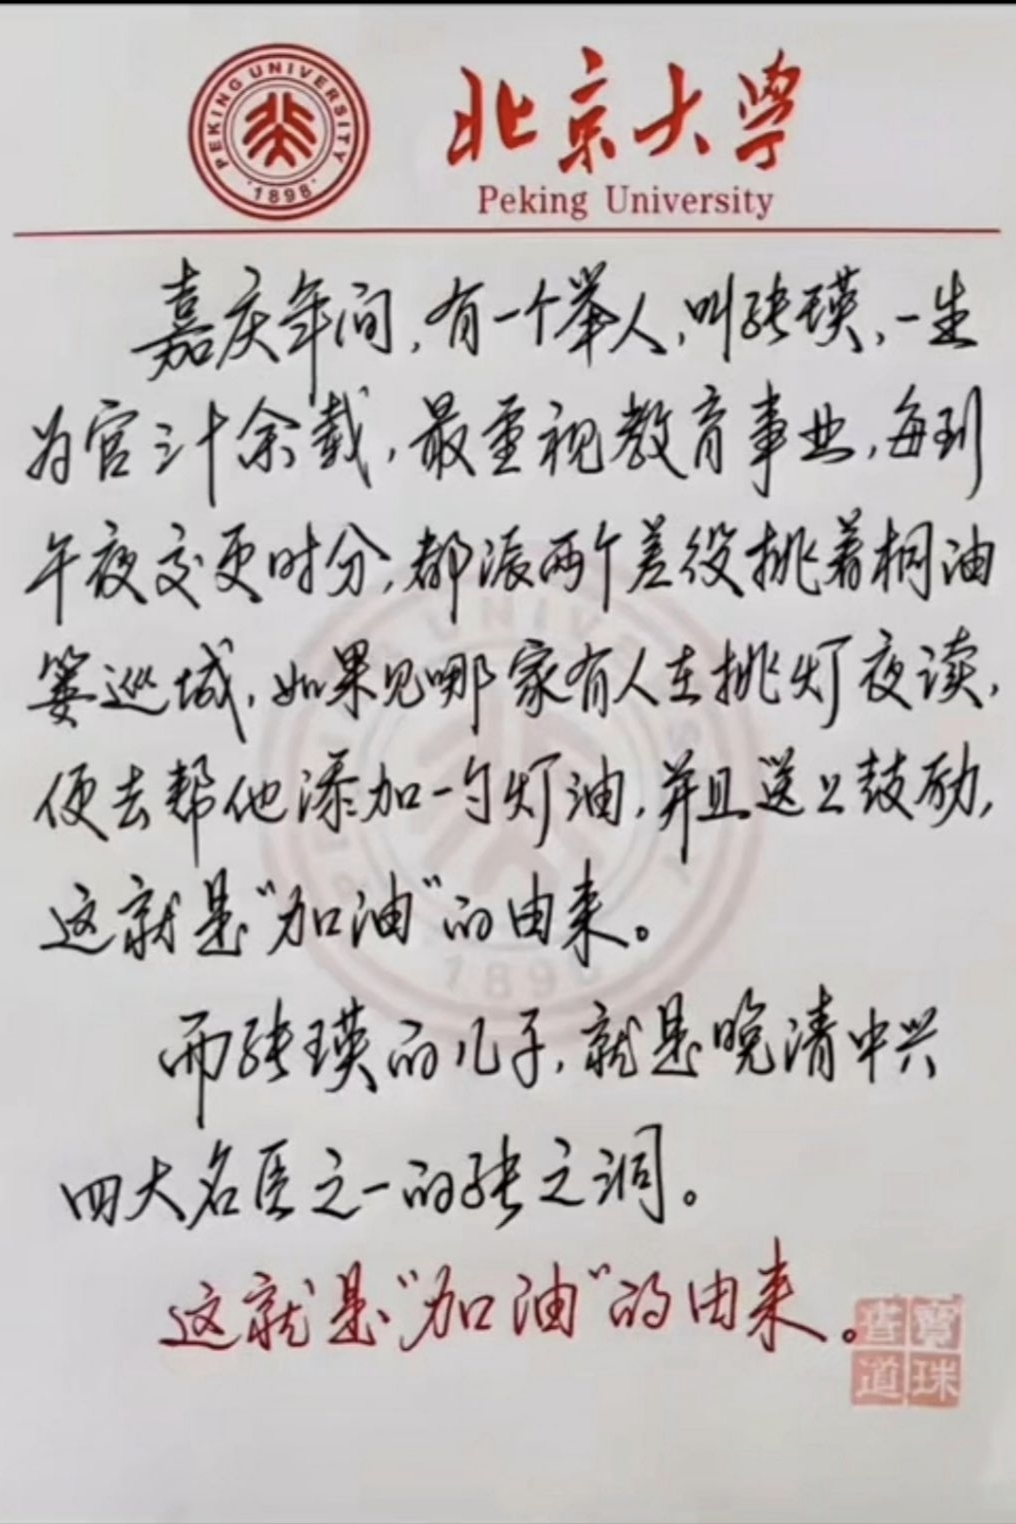 PEKING UNIVERSITY
1898
北京大学
Peking University
嘉庆年间,有一个举人,叫张瑛,一生
为官三十余载,最重视教育事业,每到
午夜交更时分,都派两个差役挑着桐油
篓巡城,如果见哪家有人在挑灯夜读,
便去帮他添加一勺灯油,并且送上鼓励,
这就是“加油”的由来。
而张瑛的儿子,就是晚清中兴
四大名臣之一的张之洞。
这就是“加油”的由来。
書寶
道珠